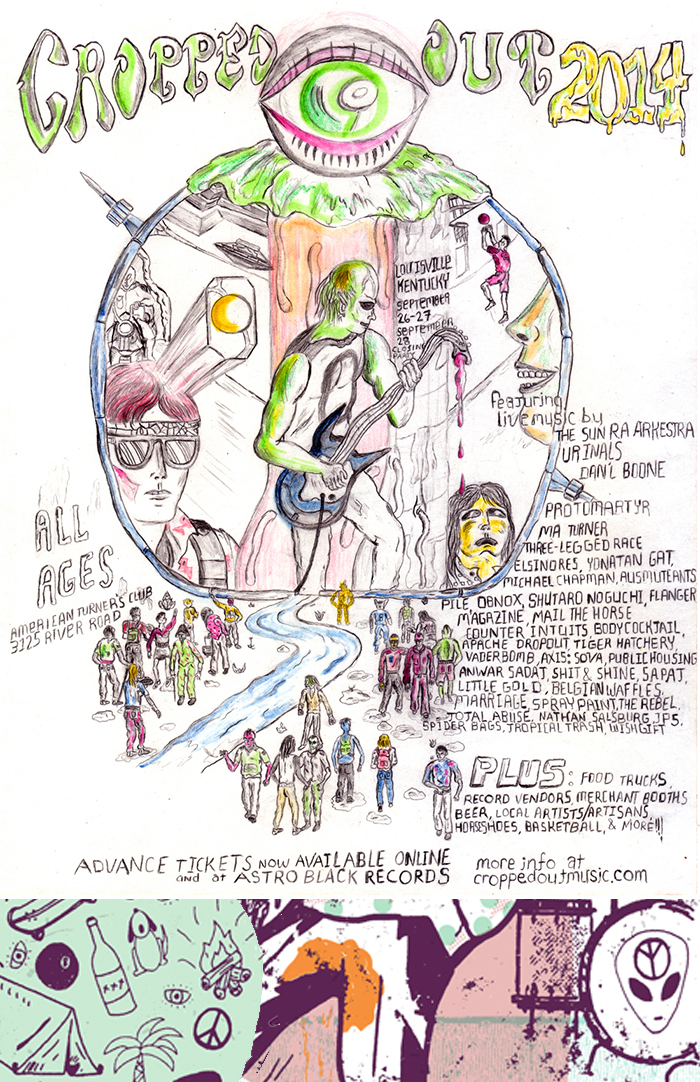 CROPPED OUT 2014
LOUISVILLE
KENTUCKY
September
26-27
September
28
CLOSING
PARTY
Featuring
live music by
THE SUN RA ARKESTRA
URINALS
DAN'L BOONE
PROTOMARTYR
MA TURNER
THREE-LEGGED RACE
ELSINORES, YONATAN GAT,
MICHAEL CHAPMAN, AUSMUTEANTS
PILE, OBNOX, SHUTARO NOGUCHI, FLANGER
MAGAZINE, MAIL THE HORSE
COUNTER INTUITS, BODYCOCKTAIL,
APACHE DROPOUT, TIGER HATCHERY,
VADERBOMB, AXIS: SOVA, PUBLIC HOUSING
ANWAR SADAT, SHIT & SHINE, SAPAT,
LITTLE GOLD, BELGIAN WAFFLES,
MARRIAGE, SPRAY PAINT, THE REBEL,
TOTAL ABUSE, NATHAN SALSBURG, JP5,
SPIDER BAGS, TROPICAL TRASH, WISHGIFT
ALL
AGES
AMERICAN TURNER'S CLUB
3125 RIVER ROAD
PLUS: FOOD TRUCKS,
RECORD VENDORS, MERCHANT BOOTHS
BEER, LOCAL ARTISTS/ARTISANS,
HORSESHOES, BASKETBALL, & MORE!!!
ADVANCE TICKETS NOW AVAILABLE ONLINE
and at ASTRO BLACK RECORDS
more info at
croppedoutmusic.com
xxx